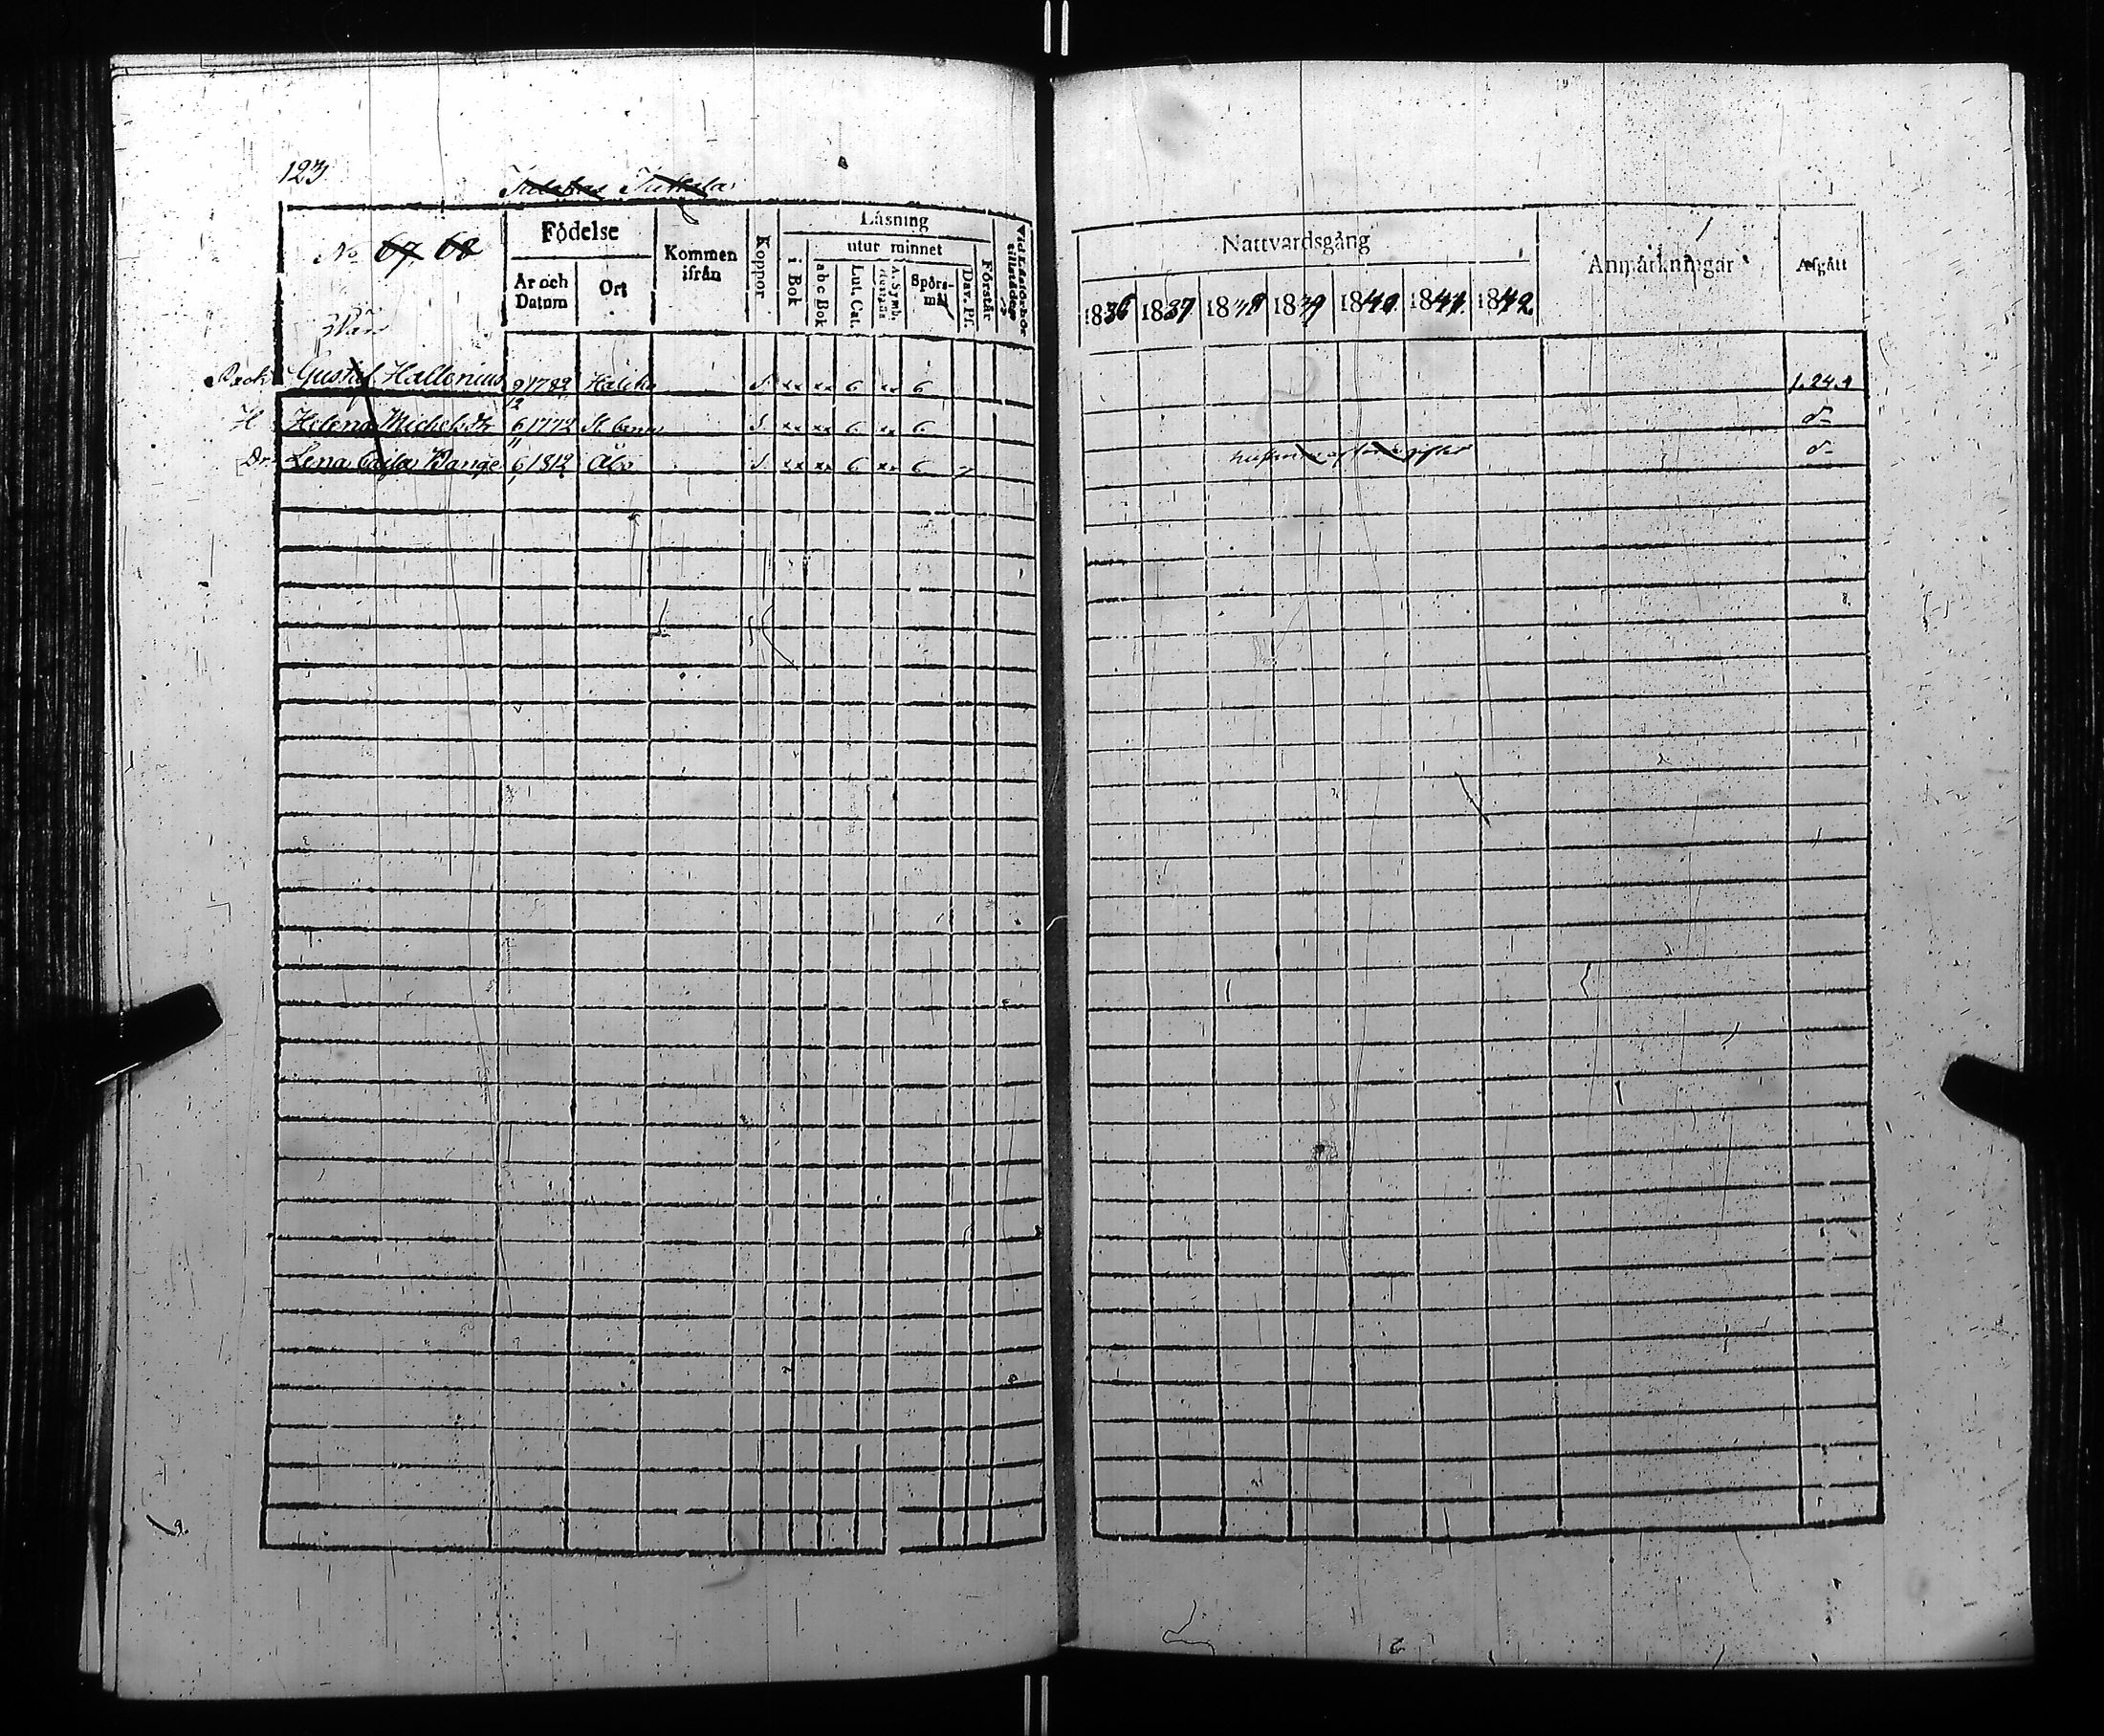 123.
No 67. 68
Födelse
Kommen ifrån
Koppor
Läsning
utur minnet
i Bok
År och Datum
Ort
abc Bok
Lut. Cat.
A. Symb.
Spörsmål
Dav. Ps.
Förstår
Nattvardsgång
Anmärkningar
Afgått
1836 1837 1838 1839 1840. 1841. 1842.
Gustaf Hallenius 9 1782 Haliko S. xx xx 6 xx 6 1.24.
12
H Helena Michelsdr 6 1772 S. xx xx 6 xx 6 d-
11
Dr Lena Cajsa Wange 6 1812 Åbo S. xx xx 6 xx 6 7 d-
1